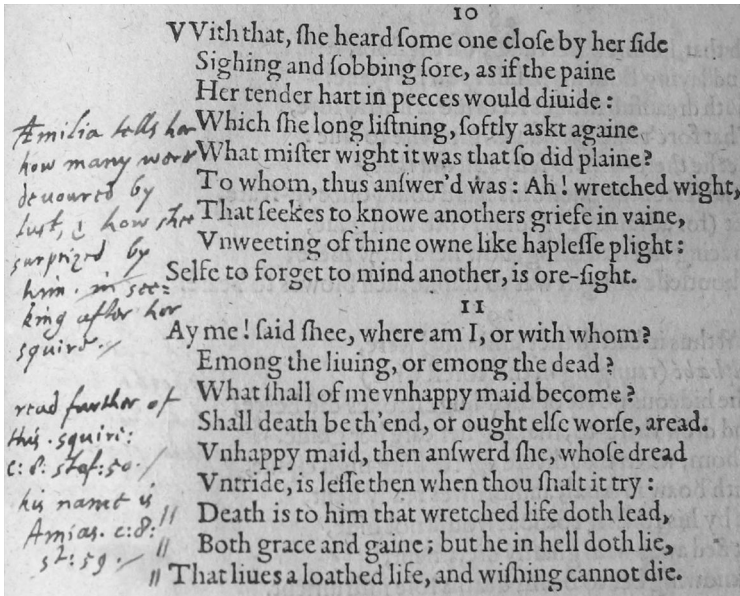 10
VVith that, ſhe heard ſome one cloſe by her ſide
Sighing and ſobbing ſore, as if the paine
Her tender hart in peeces would diuide:
Which ſhe long liſtning, ſoftly askt againe
What miſter wight it was that ſo did plaine?
To whom, thus anſwer'd was: Ah! wretched wight,
That ſeekes to knowe anothers griefe in vaine,
Vnweeting of thine owne like hapleſſe plight:
Selfe to forget to mind another, is ore-ſight.
11
Ay me! ſaid ſhee, where am I, or with whom?
Emong the liuing, or emong the dead?
What ſhall of me vnhappy maid become?
Shall death be th'end, or ought elſe worſe, aread.
Vnhappy maid, then anſwerd ſhe, whoſe dread
Vntride, is leſſe then when thou ſhalt it try:
Death is to him that wretched life doth lead,
Both grace and gaine; but he in hell doth lie,
That liues a loathed life, and wiſhing cannot die.
Æmilia tells her
how many were
deuoured by
lust, & how shee
surprized by
him. in see=
king after her
squire. /
read farther of
this. squire:
c: 8: staf: 50. /
his name is
Amias. c: 8:
st: 59. /
//
//
//